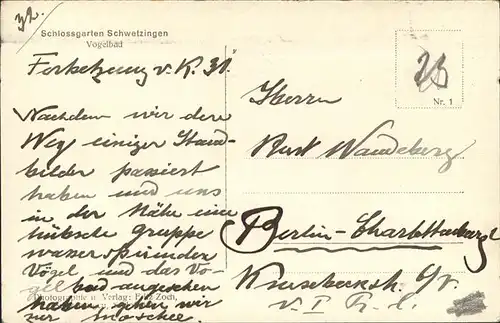 32.
Schlossgarten Schwetzingen
Vogelbad
Fortsetzung v. K. 31.
Nachdem wir den
Weg einiger Stand-
bilder passiert
haben und uns
in der Nähe eine
hübsche Gruppe
wasserspeiender
Vögel und das Vo-
gelbad angesehen
haben, gehen wir
zur Moschee.
Photographie u. Verlag: Fritz Zoch,
Nr. 1
Herrn
Kurt
Berlin-Charlottenburg
v. I Tr. l.